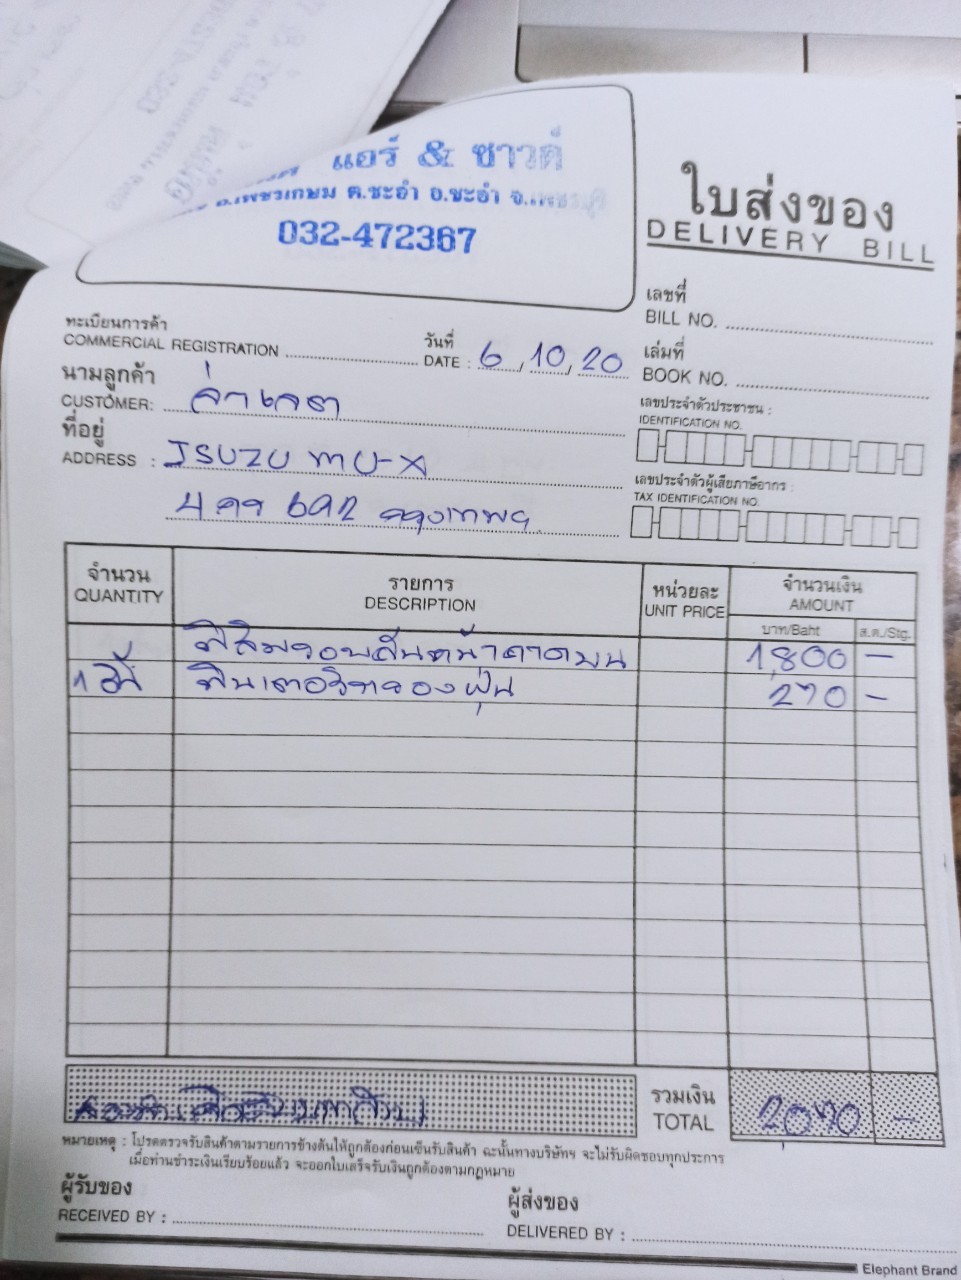 แอร์ & ซาวด์
ถ.เพชรเกษม ต.ชะอำ อ.ชะอำ จ.เพชรบุรี
032-472367
ใบส่งของ
DELIVERY BILL
เลขที่
BILL NO.
ทะเบียนการค้า
COMMERCIAL REGISTRATION
วันที่
DATE : 6, 10, 20
เล่มที่
BOOK NO.
นามลูกค้า
CUSTOMER:
เลขประจำตัวประชาชน :
IDENTIFICATION NO.
ที่อยู่
ADDRESS : ISUZU MU-X
เลขประจำตัวผู้เสียภาษีอากร :
TAX IDENTIFICATION NO.
692 กรุงเทพฯ
จำนวน
QUANTITY
รายการ
DESCRIPTION
หน่วยละ
UNIT PRICE
จำนวนเงิน
AMOUNT
บาท/Baht ส.ต./Stg.
ฟิล์มรถยนต์ 1,800 -
1 270 -
รวมเงิน
TOTAL 2,070 -
หมายเหตุ : โปรดตรวจรับสินค้าตามรายการข้างต้นให้ถูกต้องก่อนเซ็นรับสินค้า ฉะนั้นทางบริษัทฯ จะไม่รับผิดชอบทุกประการ
เมื่อท่านชำระเงินเรียบร้อยแล้ว จะออกใบเสร็จรับเงินถูกต้องตามกฎหมาย
ผู้รับของ
RECEIVED BY :
ผู้ส่งของ
DELIVERED BY :
Elephant Brand